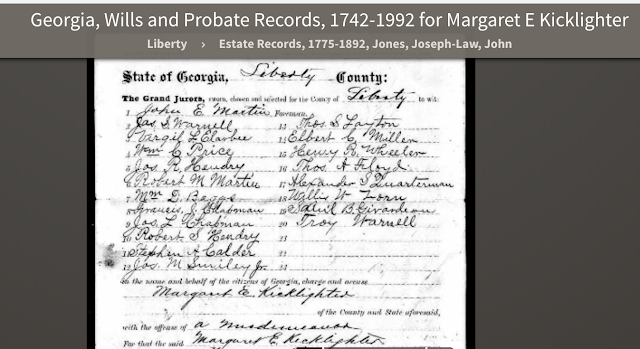 Georgia, Wills and Probate Records, 1742-1992 for Margaret E Kicklighter
Liberty › Estate Records, 1775-1892, Jones, Joseph-Law, John
State of Georgia, Liberty County:
The Grand Jurors, sworn, chosen and selected for the County of Liberty to wit:
1 John E. Martin Foreman.
2 Jas. S. Warnell
3 Virgil L.
4 Wm C Price
5 Jos. R. Hendry
6 Robert M Martin
7 Wm D. Beggs
8 Francis J. Chapman
9 Jos. L. Chapman
10 Robert S Hendry
11 Stephen A Calder
12 Jos. M Smiley Jr.
13 Thos. S Layton
14 Elbert C. Miller
15 Henry R. Wheeler
16 Thos. A Floyd
17 Alexander S Quarterman
18 Willis W Zorn
19 B. Girardeau
20 Troy Warnell
21
22
23
24
In the name and behalf of the citizens of Georgia, charge and accuse
Margaret E. Kicklighter
of the County and State aforesaid,
with the offense of a misdemeanor
For that the said Margaret E. Kicklighter